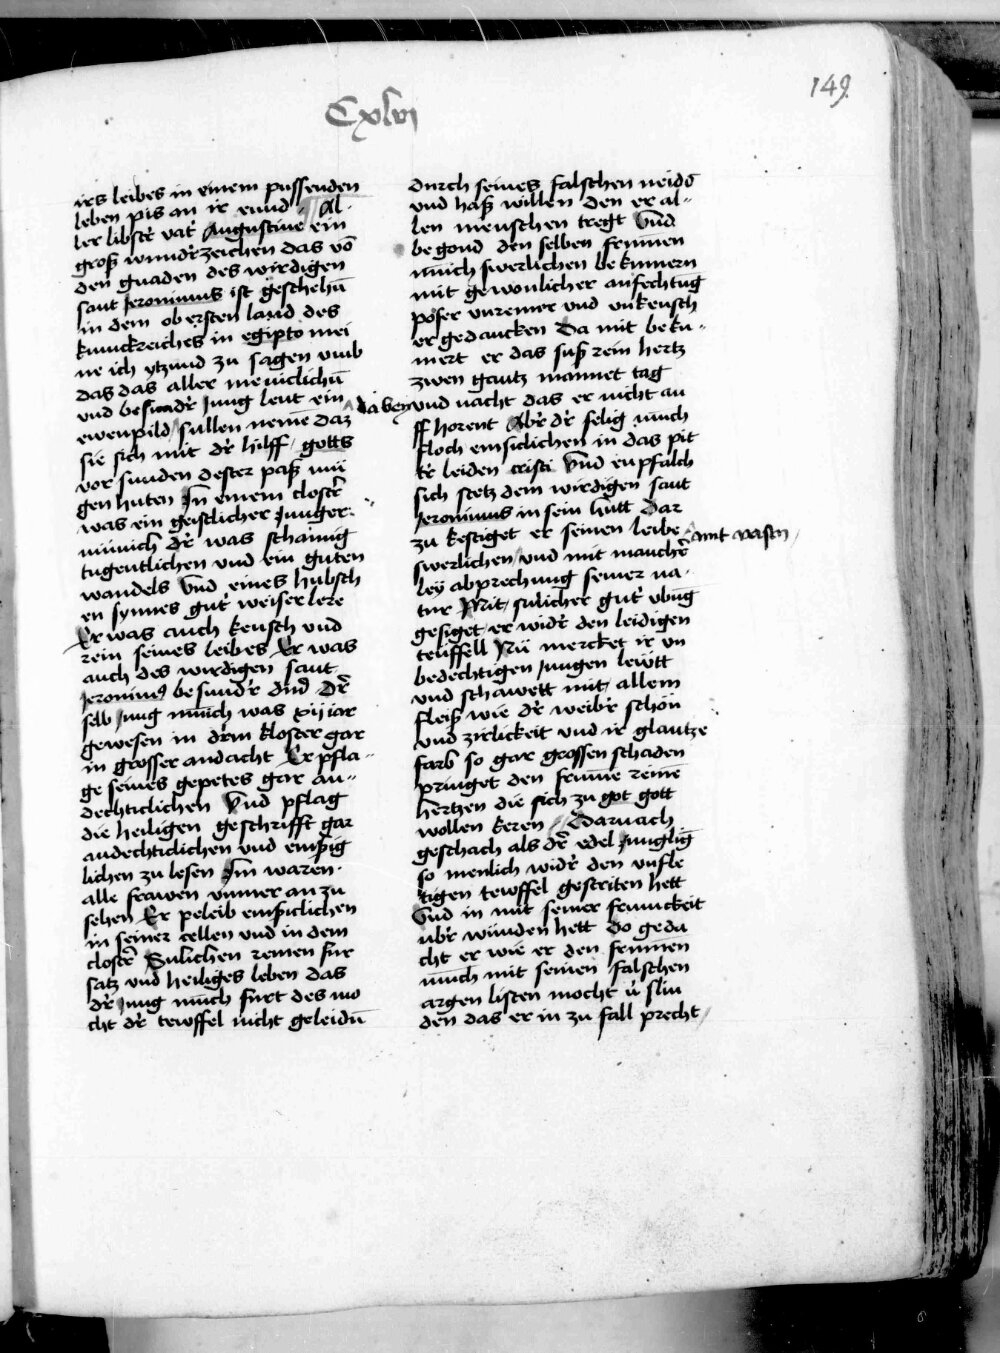 149.
Cxlvi
irs leibes in einem pussenden
leben pis an ir ennd ¶ Al-
ler libster̄ vat̄ Augustine ein
groß wundr̄zeichen das vō
den gnaden des wirdigen
sant Jeronimus ist geschehn̄
in dem obersten land des
kunickreiches in egipto mei
ne ich ytzund zu sagen vmb
das das aller meniclichn̄
und besundr̄ Jung leut ein
ewenpild / sullen nemē daz
da bey
sie sich mit dr̄ hilff gotts
vor sunden dester paß mü
gen huten Jn einem closter̄
was ein geistlicher Junger
münich dr̄ was schamig
tugentlichen vnd ein guten
wandels Vnd eines hubsch
en synnes gut̄ weiser lere
Er was auch keusch vnd
rein seines leibes Er was
auch des wirdigen sant
Jeronimꝰ besundr̄ dn̄d Dr̄
selb Jung münich was xij iar
gewesen in dem kloster gar
in grosser andacht Er pfla-
ge seines gepetes gar an-
dechticlichen Vnd pflag
die heiligen geschrifft gar
andechticlichen vnd emßig
lichen zu lesen Jm waren
alle frawen vnmer an zu
sehen Er peleib emßiclichen
in seiner cellen vnd in dem
closter̄ Sulichen reinen fur
satz vnd heiliges leben das
dr̄ Jung münch furt des mo
cht dr̄ tewffel nicht geleidn̄
durch seines falschen neids
vnd haß willen den er al-
len menschen tregt Vnd
begond den selben frumen
münich swerlichen bekumern
mit gewonlicher anfechtūg
poser vnreiner vnd vnkeusch
er gedancken Da mit beku-
mert er das suß rein hertz
zwen gantz mannet tag
vnd nacht das er nicht au
ff horent Abr̄ dr̄ selig münch
floch emsiclichen in das pit
tr̄ leiden cristi Vnd enpfalch
sich stetz dem wirdigen sant
Jeronimus in sein hutt Dar
zu kestiget er seinen leibe
swerlichen / vnd mit manchē
mit vasten /
ley abprechung seiner na-
tur Mit sulicher gut̄ vbūg
gesiget er widr̄ den leidigen
teuffell Nü mercket ir vn
bedechtigen Jungen lewtt
vnd schawett mit allem
fleiß wie dr̄ weibr̄ schön
vnd zirlickeit vnd ir glantze
farb so gar grossen schaden
pringet den frume reinē
hertzen die sich zu got gott
wollen keren // Darnach
geschach als dr̄ edel Jungligˉ
so menlich widr̄ den vnfle
tigen tewffel gestriten hett
Vnd in mit seiner frumckeit
ubr̄ wunden hett Do geda
cht er wie er den frumen
münch mit seinen falschen
argen listen mocht ū slin
den das er in zu fall precht /